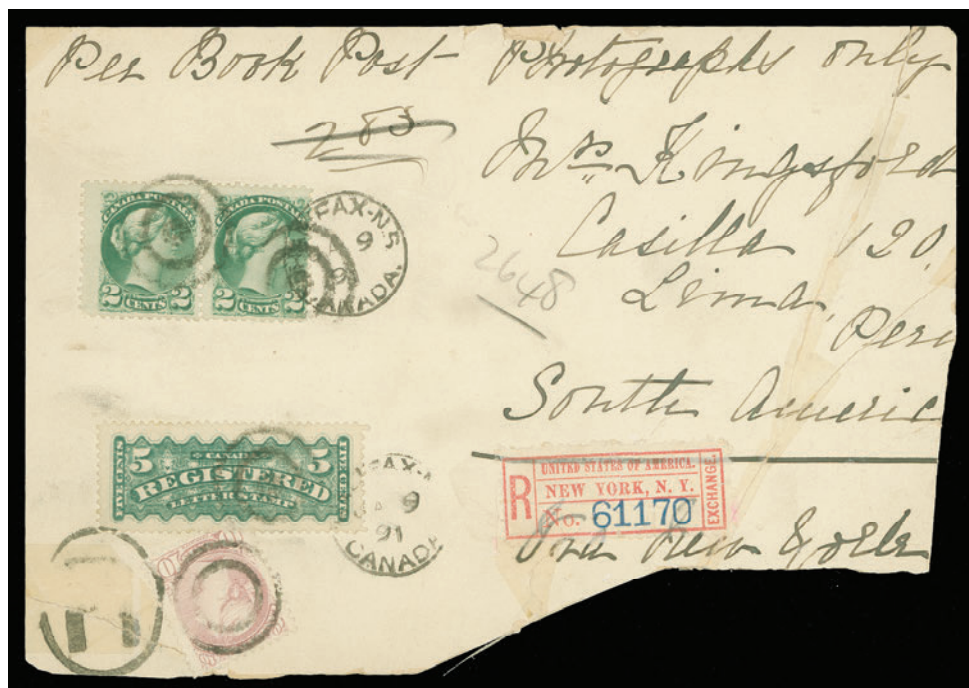 Per Book Post Photographs only
283
Mrs Kingsford
Casilla 120.
Lima,
Peru
South Americ
2648
CANADA POSTAGE
2 CENTS 2
CANADA POSTAGE
2 CENTS 2
FAX·N.S
9
CANADA.
CANADA
5 REGISTERED 5
LETTER STAMP
FIVE CENTS
FIVE CENTS
FAX·N
9
91
CANADA
UNITED STATES OF AMERICA.
R NEW YORK, N. Y.
No. 61170
EXCHANGE.
Via New York
R
10